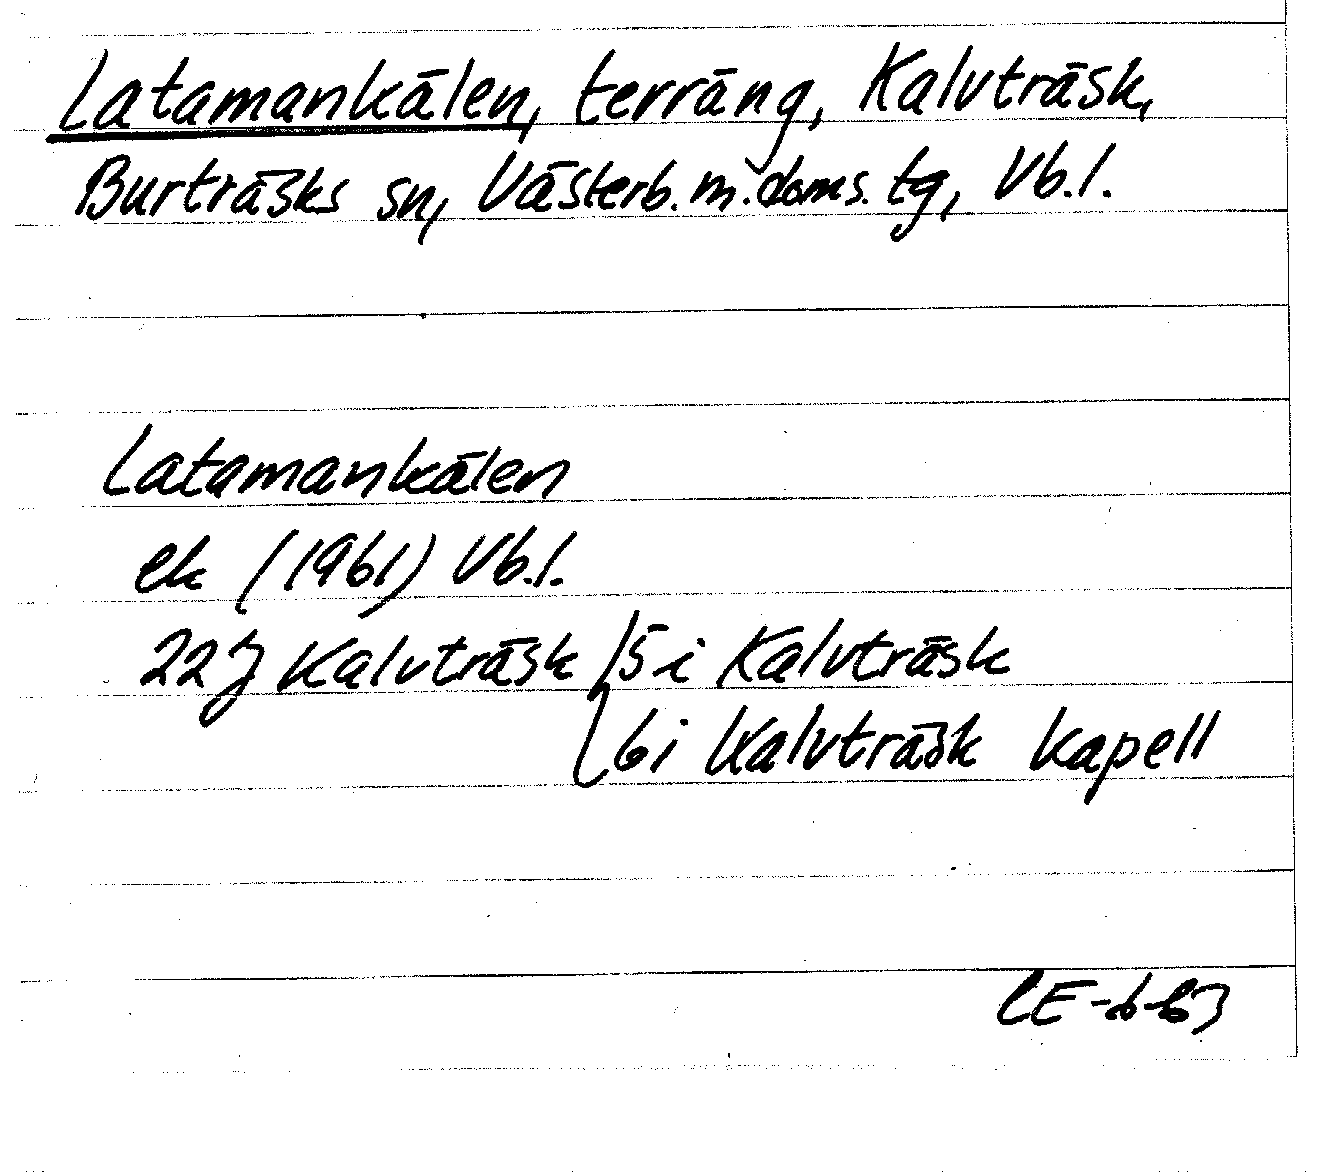 Latamankälen, terräng, Kalvträsk,
Burträsks sn, Västerb. m. doms. tg, Vb. l.
Latamankälen
ek (1961) Vb. l.
22 J Kalvträsk 5 i Kalvträsk
6 i Kalvträsk kapell